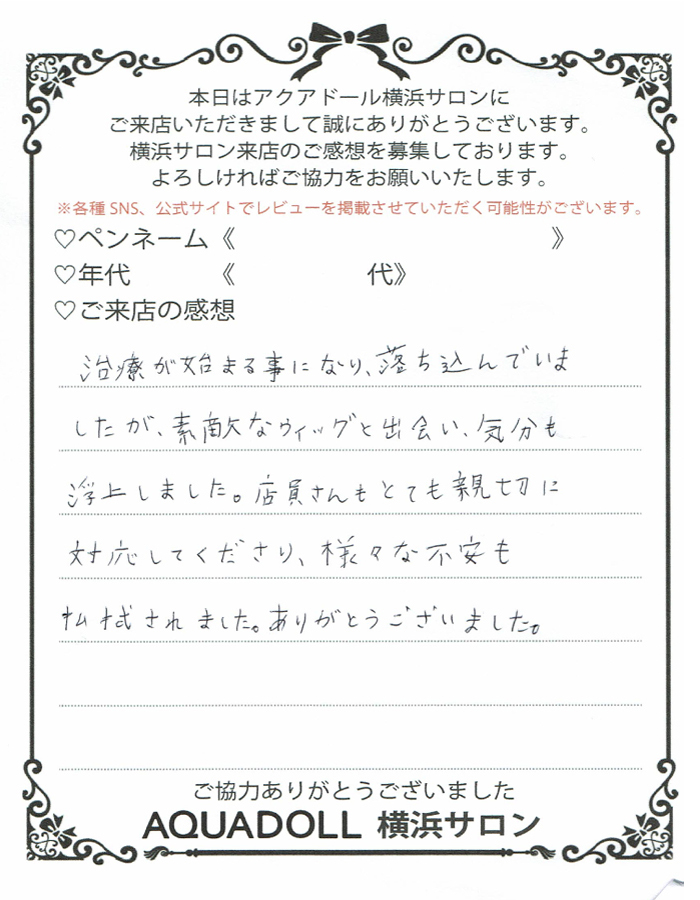 本日はアクアドール横浜サロンに
ご来店いただきまして誠にありがとうございます。
横浜サロン来店のご感想を募集しております。
よろしければご協力をお願いいたします。
※各種SNS、公式サイトでレビューを掲載させていただく可能性がございます。
♡ペンネーム《 》
♡年代 《 代》
♡ご来店の感想
治療が始まる事になり、落ち込んでいま
したが、素敵なウィッグと出会い、気分も
浮上しました。店員さんもとても親切に
対応してくださり、様々な不安も
払拭されました。ありがとうございました。
ご協力ありがとうございました
AQUADOLL 横浜サロン